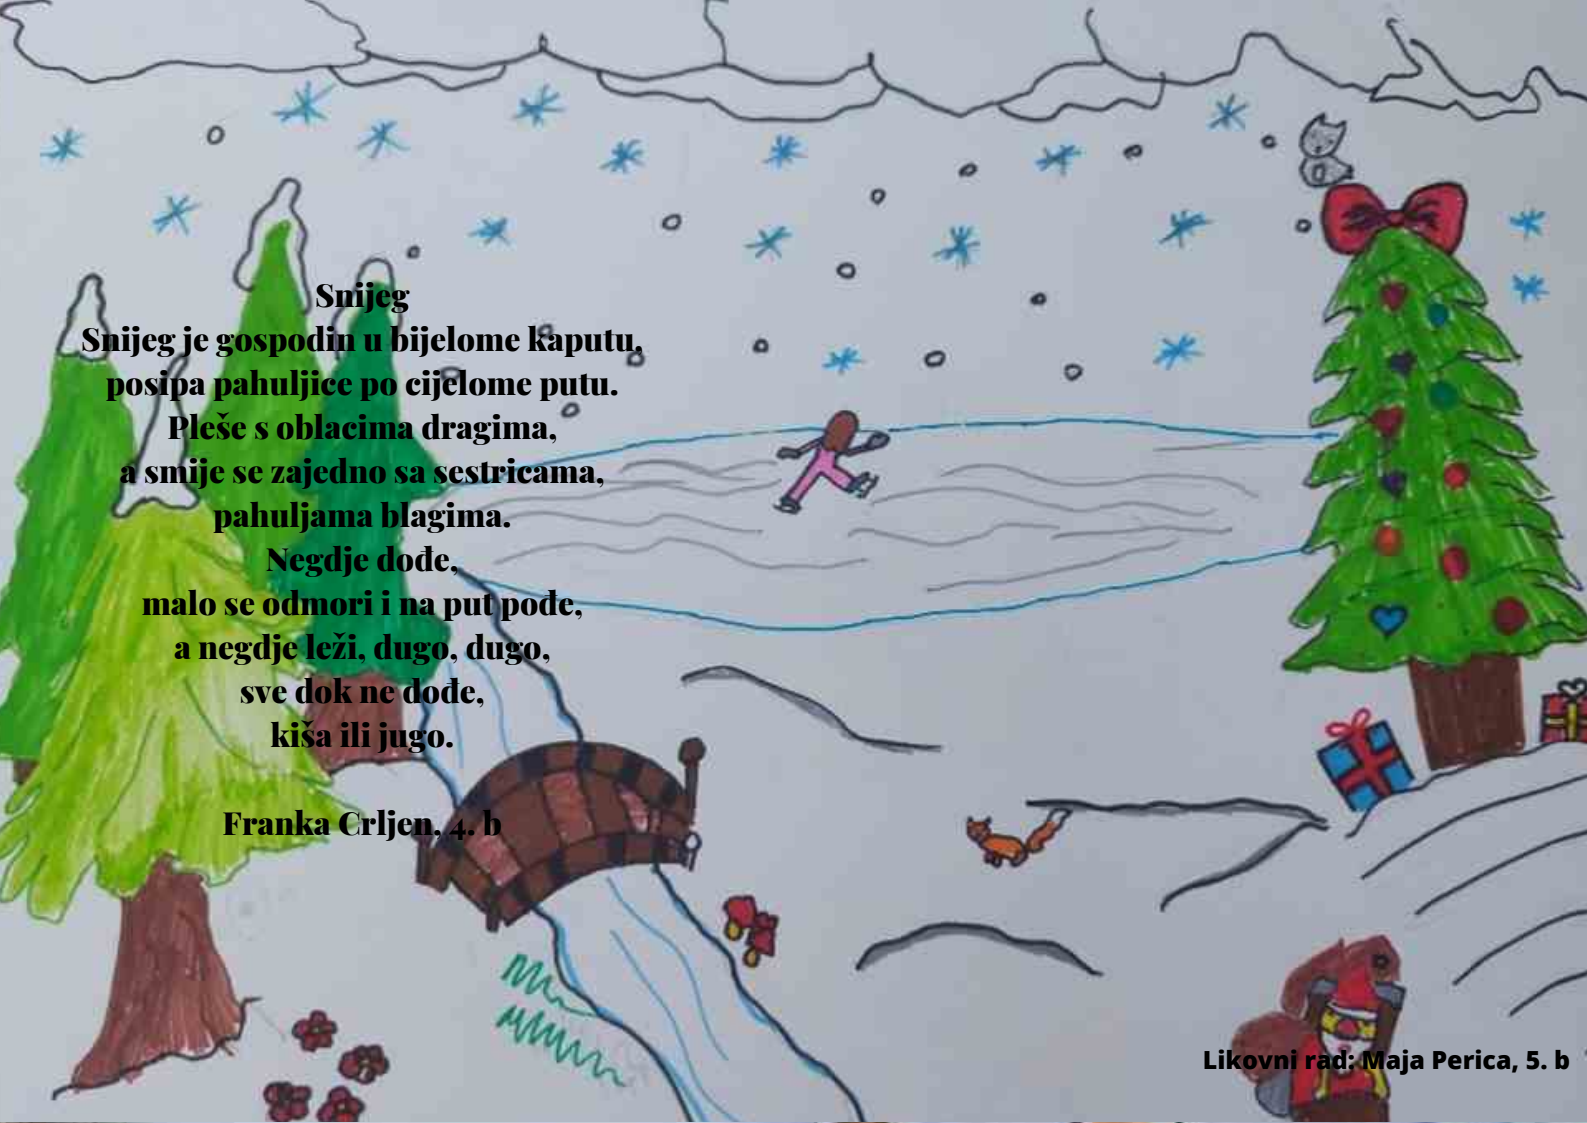 Snijeg
Snijeg je gospodin u bijelome kaputu,
posipa pahuljice po cijelome putu.
Pleše s oblacima dragima,
a smije se zajedno sa sestricama,
pahuljama blagima.
Negdje dođe,
malo se odmori i na put pođe,
a negdje leži, dugo, dugo,
sve dok ne dođe,
kiša ili jugo.
Franka Crljen, 4. b
Likovni rad: Maja Perica, 5. b